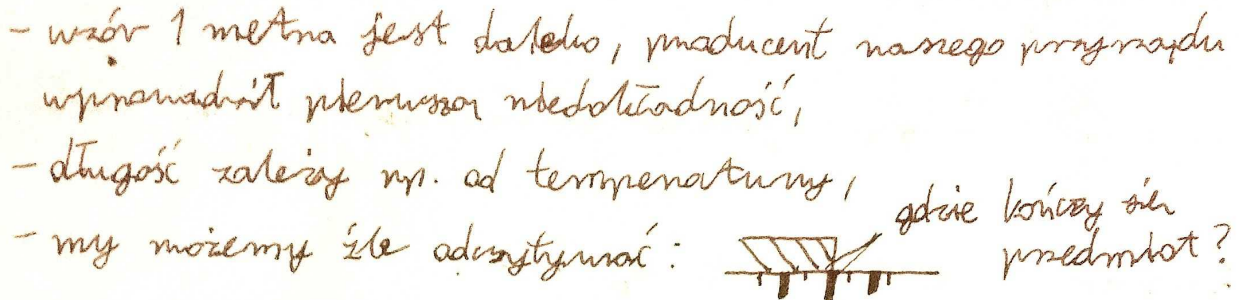 - wzór 1 metra jest daleko, producent naszego przyrządu
wprowadził pierwszą niedokładność,
- długość zależy np. od temperatury,
- my możemy źle odczytywać: gdzie kończy się
przedmiot?